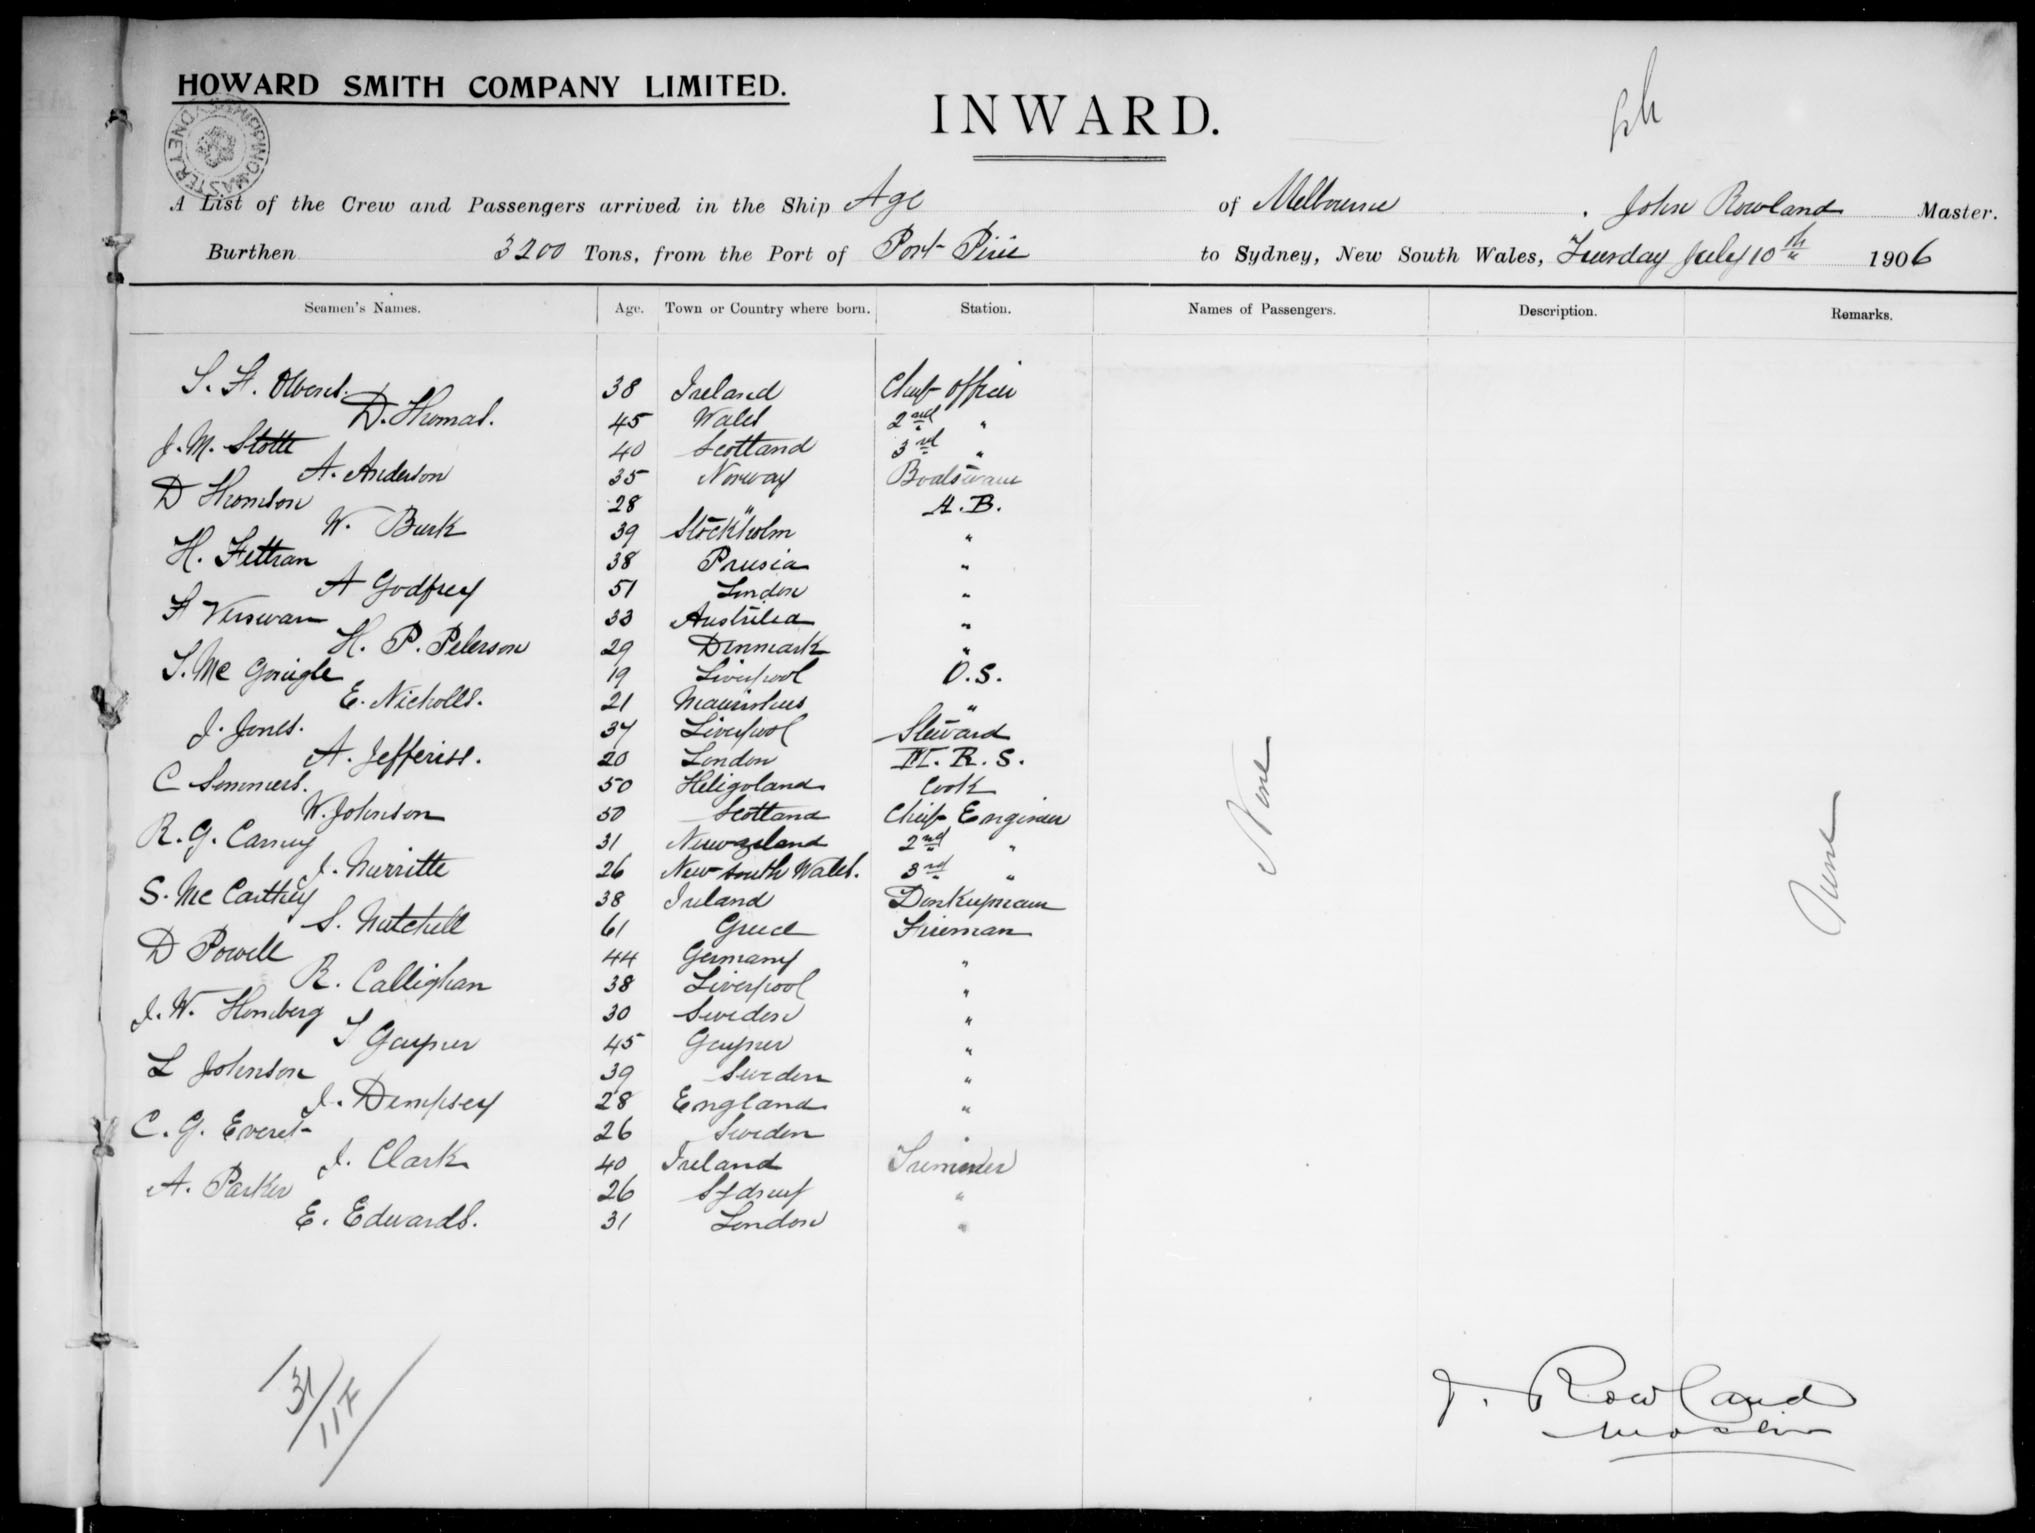 HOWARD SMITH COMPANY LIMITED.
INWARD.
SHIPPING MASTER SYDNEY
A List of the Crew and Passengers arrived in the Ship Age of Melbourne, John Rowland Master.
Burthen 3200 Tons, from the Port of Port Pirie to Sydney, New South Wales, Tuesday July 10th 1906
Seamen's Names. Age. Town or Country where born. Station. Names of Passengers. Description. Remarks.
38 Ireland Chief Officer
D. Thomas. 45 Wales 2nd "
J. M. Stotte 40 Scotland 3rd "
A. Anderson 35 Norway Boatswain
D Thomson 28 " A.B.
W. Burk 39 Stockholm "
H. Fettran 38 Prusia "
A Godfrey 51 London "
F 33 "
H. P. Peterson 29 Denmark "
19 Liverpool O.S.
E. Nicholls. 21 Mauritius "
J. Jones. 37 Liverpool Steward
A. Jefferiss. 20 London M.R.S.
C Sommers. 50 Heligoland Cook
W. Johnson 50 Scotland Chief Enginier
R. G. Carney 31 Newzeland 2nd "
J. Merritte 26 New South Wales. 3rd "
S. Mc Carthey 38 Ireland Donkeyman
S. Mitchell 61 Greece Fireman
D Powell 44 Germany "
R. Callighan 38 Liverpool "
J. W. Homberg 30 Sweden "
45 "
L Johnson 39 Sweden "
J. Dempsey 28 England "
C. G. Everet 26 Sweden "
J. Clark 40 Ireland Trimmer
A. Parker 26 Sydney "
E. Edwards. 31 London "
None
None
31/11F
J. Rowland
Master